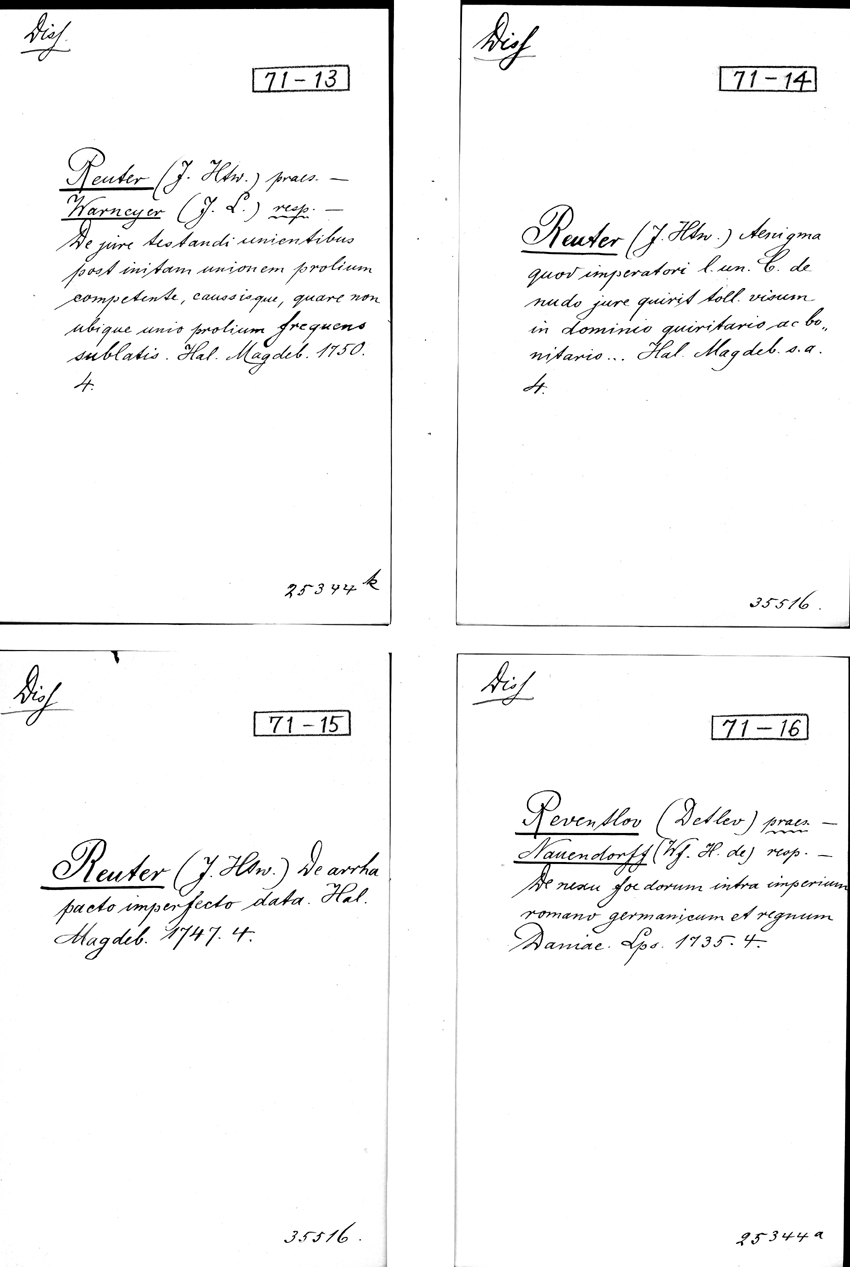 Diss.
71-13
Reuter (J. Htw.) praes. —
Warneyer (J. L.) resp. —
De jure testandi unientibus
post initam unionem prolium
competente, caussisque, quare non
ubique unio prolium frequens
sublatis. Hal. Magdeb. 1750.
4.
25344 k
Diss
71-14
Reuter (J. Htw.) Aenigma
quod imperatori l. un. C. de
nudo jure quirit toll. visum
in dominio quiritario ac bo„
nitario... Hal. Magdeb. s. a.
4.
35516.
Diss
71-15
Reuter (J. Htw.) De arrha
pacto imperfecto data. Hal.
Magdeb. 1747. 4.
35516.
Diss
71-16
Reventlov (Detlev) praes. —
Nauendorff (Wf. H. de) resp. —
De nexu foedorum intra imperium
romano germanicum et regnum
Daniae. Lps. 1735. 4.
25344 a